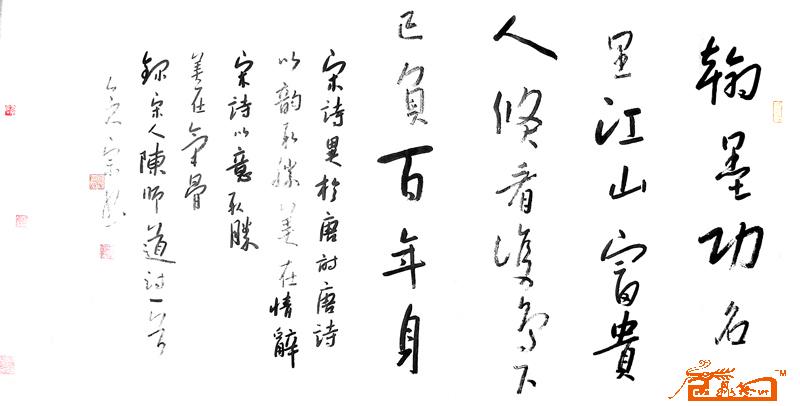 翰墨功名
里江山富貴
人倏看雙鳥下
已負百年身
宋詩異於唐詩唐詩
以韵取勝美在情辭
宋詩以意取勝
美在氣骨
録宋人陳師道詩一首